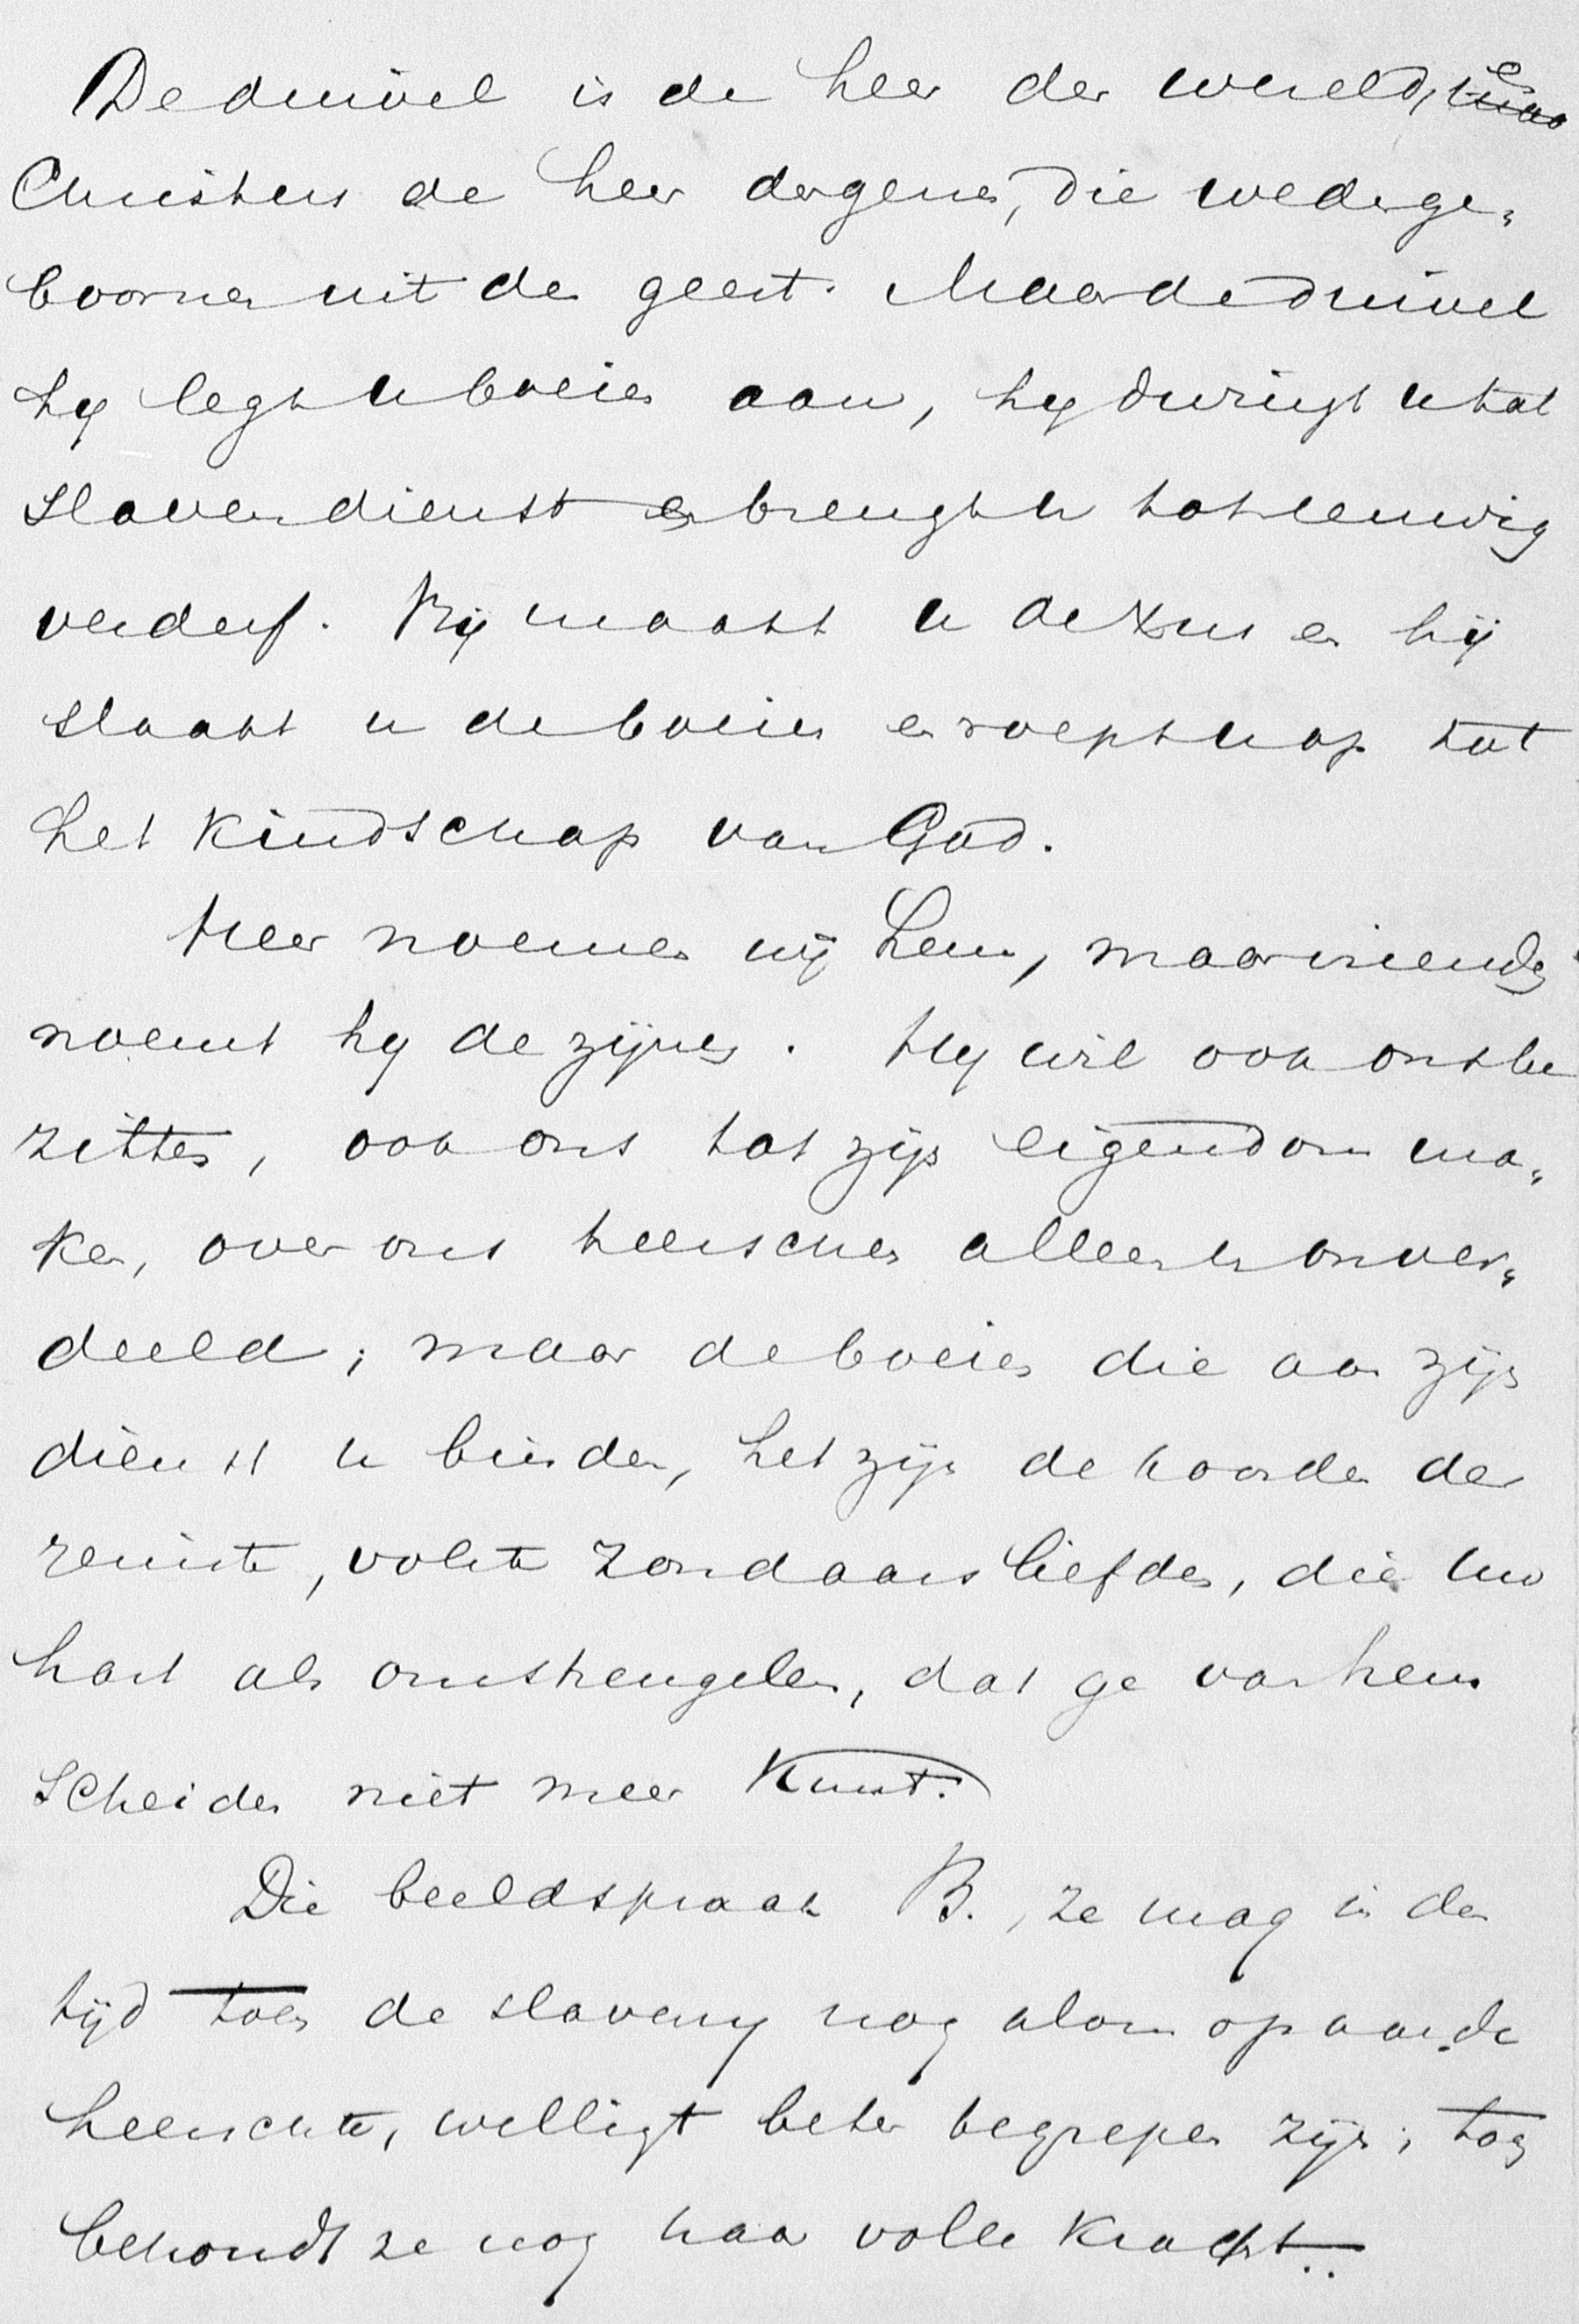 De duivel is de heer der wereld, en
Christus de heer dergenen, die wederge„
boornen uit de geest. Maar de duivel
hy legt u boeien aan, hy dwingt u tot
slavendienst en brengt u tot eeuwig
verderf. Hij maakt u de Xus en hij
slaakt u de boeien en roept u op tot
het kindschap van God.
Heer noemen wij hem, maar vriendⁿ
noemt hy de zijnen. Hy wil ook ons be
zitten, ook ons tot zijn eigendom ma„
ken, over ons heerschen alleen en onver„
deeld; maar de boeien die aan zijn
dienst u binden, het zijn de koorden der
reinste, volste zondaarsliefde, die uw
hart als omstrengelen, dat ge van hem
scheiden niet meer kunt.
Die beeldspraak B., ze mag in den
tijd toen de slaverny nog alom op aarde
heerschte, welligt beter begrepen zijn; tog
behoudt ze nog haar volle kracht..